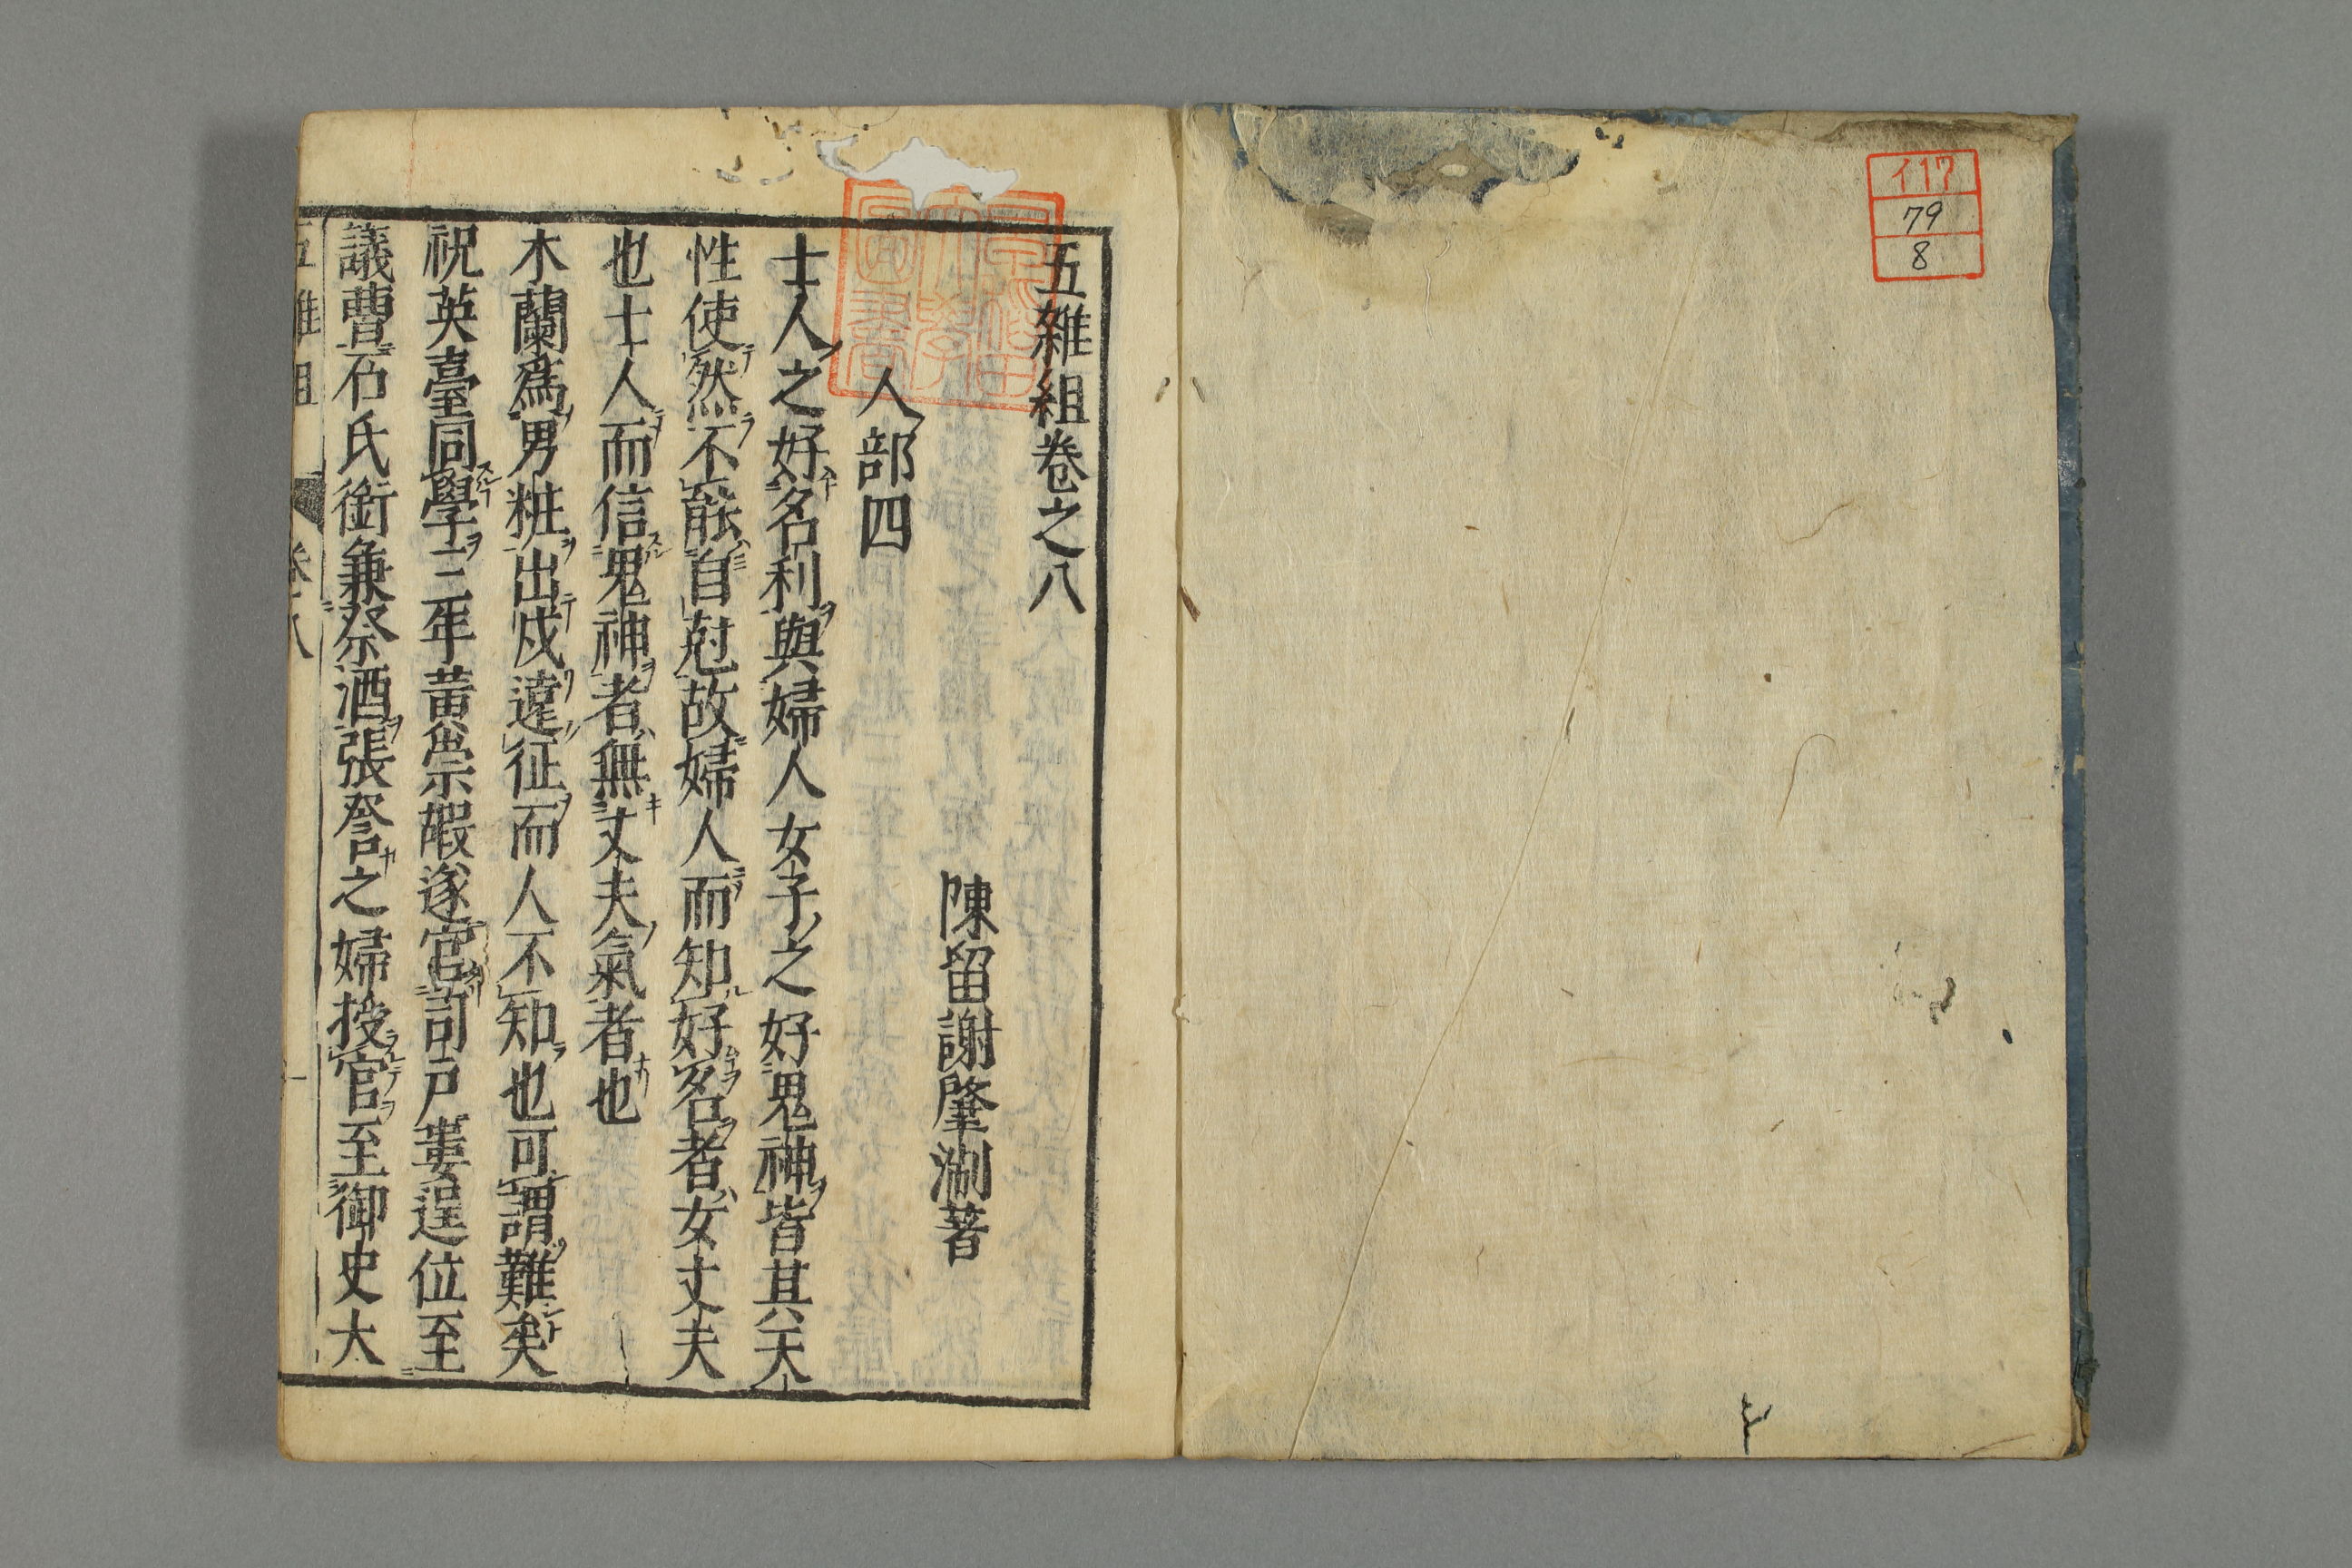 イ17
79
8
早稲田
大學
圖書
五雜組卷之八
陳留謝肇淛著
人部四
士人之好名利與婦人女子之好鬼神皆其天
性使然不能自尅故婦人而知好名者女丈夫
也士人而信鬼神者無丈夫氣者也
木蘭爲男粧出戍遠征而人不知也可謂難矣
祝英臺同學三年黃崇嘏遂官司戶婁逞位至
議曹石氏銜兼祭酒張詧之婦授官至御史大
五雜組 卷八 一